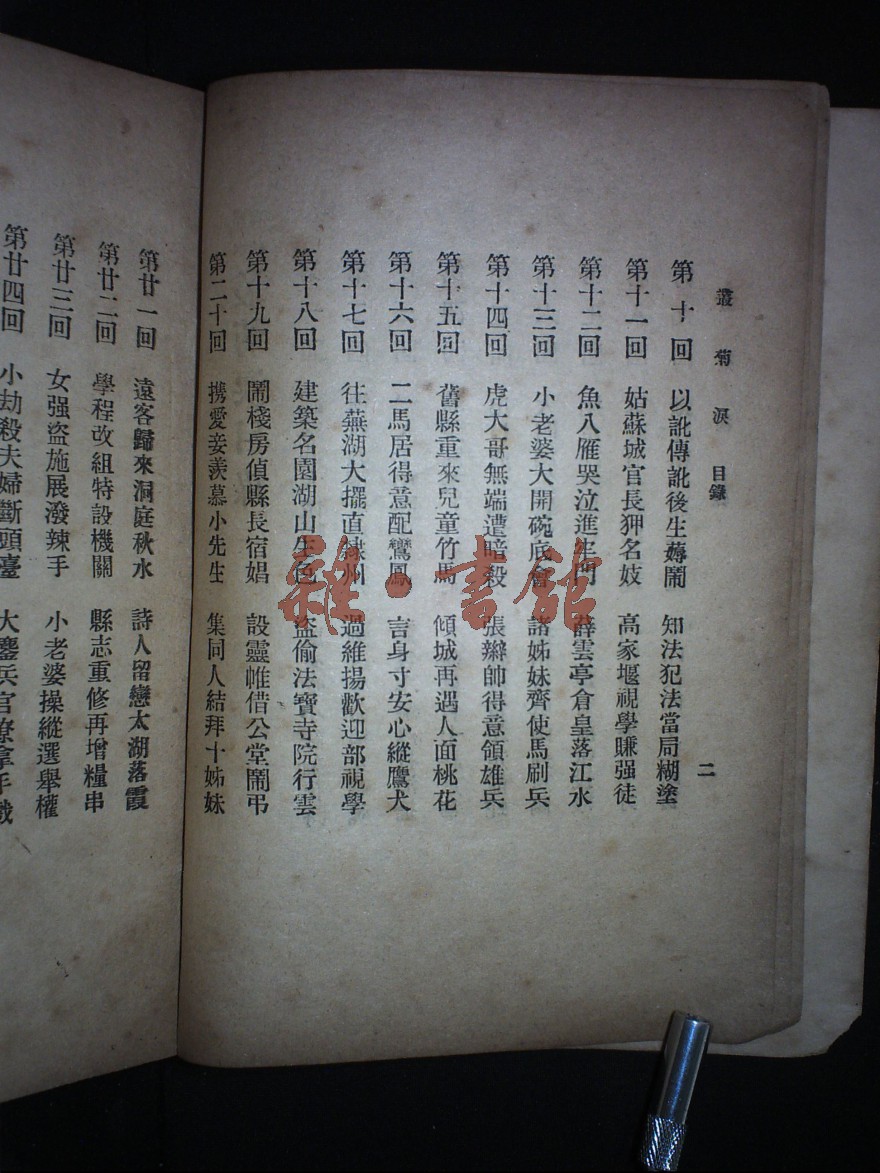 叢菊淚 目錄 二
第十回 以訛傳訛後生薅鬧 知法犯法當局糊塗
第十一回 姑蘇城官長狎名妓 高家堰視學賺强徒
第十二回 魚八雁哭泣進 門 薛雲亭倉皇落江水
第十三回 小老婆大開碗底會 諸姊妹齊使馬刷兵
第十四回 虎大哥無端遭暗殺 張辮帥得意領雄兵
第十五回 舊縣重來兒童竹馬 傾城再遇人面桃花
第十六回 二馬居得意配鸞鳳 言身寸安心縱鷹犬
第十七回 往蕪湖大擺直隸州 過維揚歡迎部視學
第十八回 建築名園湖山生色 盜偷法寶寺院行雲
第十九回 鬧棧房偵縣長宿娼 設靈帷借公堂鬧弔
第二十回 携愛妾羨慕小先生 集同人結拜十姊妹
第廿一回 遠客歸來洞庭秋水 詩人留戀太湖落霞
第廿二回 學程改組特設機關 縣志重修再增糧串
第廿三回 女强盜施展潑辣手 小老婆操縱選舉權
第廿四回 小劫殺夫婦斷頭臺 大鏖兵官僚拿手戲
雜·書館